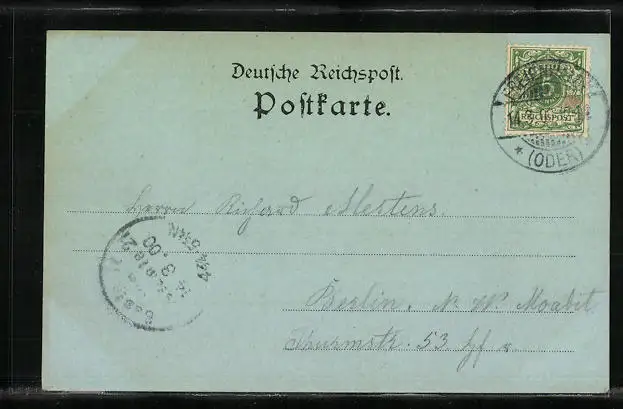 Deutsche Reichspost.
Postkarte.
5
REICHSPOST
14
* (ODER)
Herrn Richard Mertens.
Berlin, N. W. Moabit
Thurmstr. 53 hf r.